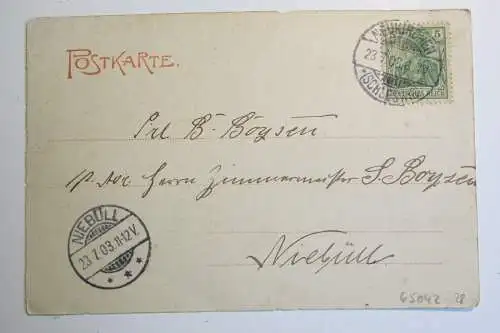 POSTKARTE.
NEUKIRCHEN
23.7.03
(SCHLESW.)
5
DEUTSCHES REICH
Frl B. Boysen
p. Adr. Herrn Zimmermeister S. Boysen
NIEBÜLL
23.7.03.11-12V.
Niebüll
65042 28